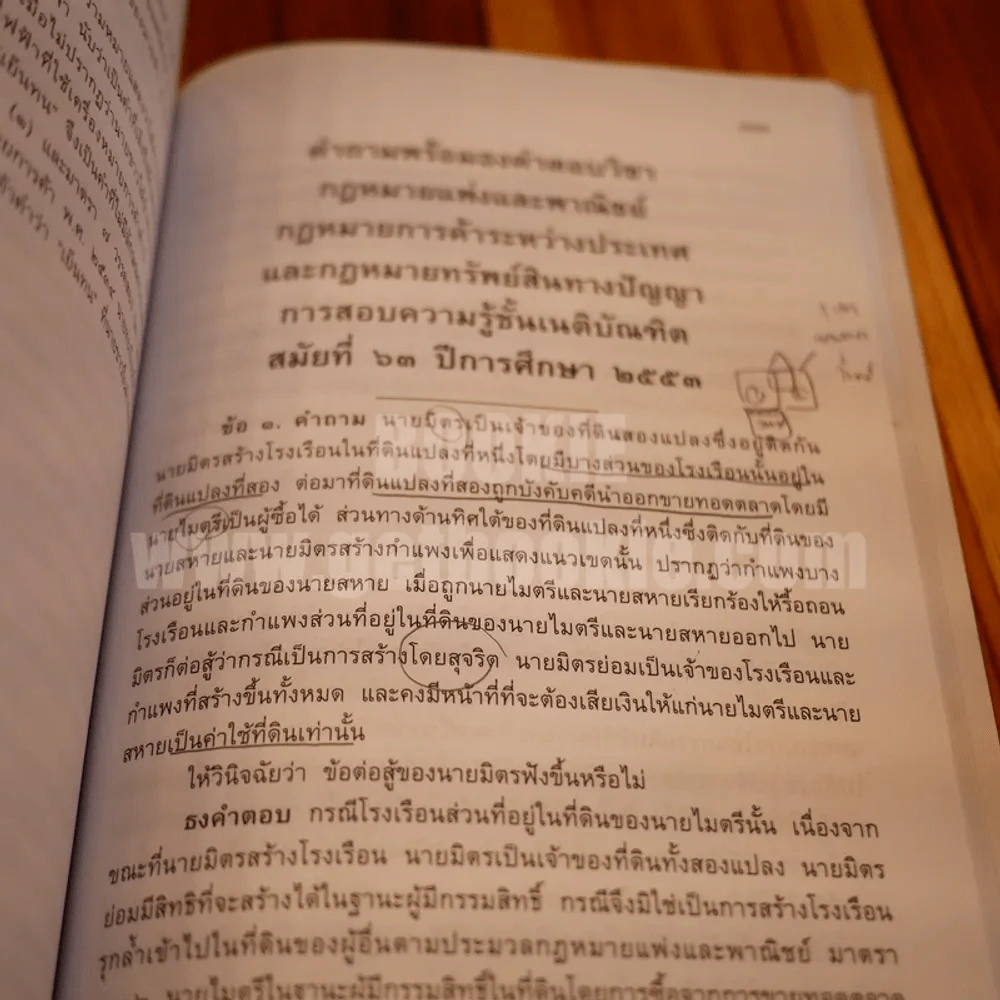 ความหมายและ
นับว่าเป็นคำที่
เมื่อไม่ปรากฏว่านาย
ไฟฟ้าที่ใช้เครื่องหมายการค้า
"เย็นทน" จึงเป็นคำที่ไม่มี
(๑) และมาตรา ๗ วรรคสอง
พ.ศ. ๒๕๓๔
คำว่า "เย็นทน"
คำถามพร้อมธงคำตอบวิชา
กฎหมายแพ่งและพาณิชย์
กฎหมายการค้าระหว่างประเทศ
และกฎหมายทรัพย์สินทางปัญญา
การสอบความรู้ชั้นเนติบัณฑิต
สมัยที่ ๖๓ ปีการศึกษา ๒๕๕๓
ข้อ ๑. คำถาม นายมิตรเป็นเจ้าของที่ดินสองแปลงซึ่งอยู่ติดกัน
นายมิตรสร้างโรงเรือนในที่ดินแปลงที่หนึ่งโดยมีบางส่วนของโรงเรือนนั้นอยู่ใน
ที่ดินแปลงที่สอง ต่อมาที่ดินแปลงที่สองถูกบังคับคดีนำออกขายทอดตลาดโดยมี
นายไมตรีเป็นผู้ซื้อได้ ส่วนทางด้านทิศใต้ของที่ดินแปลงที่หนึ่งซึ่งติดกับที่ดินของ
นายสหายและนายมิตรสร้างกำแพงเพื่อแสดงแนวเขตนั้น ปรากฏว่ากำแพงบาง
ส่วนอยู่ในที่ดินของนายสหาย เมื่อถูกนายไมตรีและนายสหายเรียกร้องให้รื้อถอน
โรงเรือนและกำแพงส่วนที่อยู่ในที่ดินของนายไมตรีและนายสหายออกไป นาย
มิตรก็ต่อสู้ว่ากรณีเป็นการสร้างโดยสุจริต นายมิตรย่อมเป็นเจ้าของโรงเรือนและ
กำแพงที่สร้างขึ้นทั้งหมด และคงมีหน้าที่ที่จะต้องเสียเงินให้แก่นายไมตรีและนาย
สหายเป็นค่าใช้ที่ดินเท่านั้น
ให้วินิจฉัยว่า ข้อต่อสู้ของนายมิตรฟังขึ้นหรือไม่
ธงคำตอบ กรณีโรงเรือนส่วนที่อยู่ในที่ดินของนายไมตรีนั้น เนื่องจาก
ขณะที่นายมิตรสร้างโรงเรือน นายมิตรเป็นเจ้าของที่ดินทั้งสองแปลง นายมิตร
ย่อมมีสิทธิที่จะสร้างได้ในฐานะผู้มีกรรมสิทธิ์ กรณีจึงมิใช่เป็นการสร้างโรงเรือน
รุกล้ำเข้าไปในที่ดินของผู้อื่นตามประมวลกฎหมายแพ่งและพาณิชย์ มาตรา
นายไมตรีในฐานะผู้มีกรรมสิทธิ์ในที่ดินโดยการซื้อจากการขายทอดตลาด